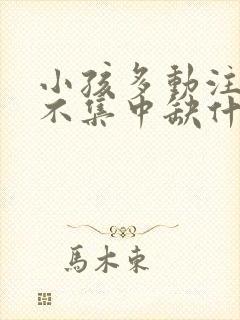 小孩多動注
不集中缺什
馬木東